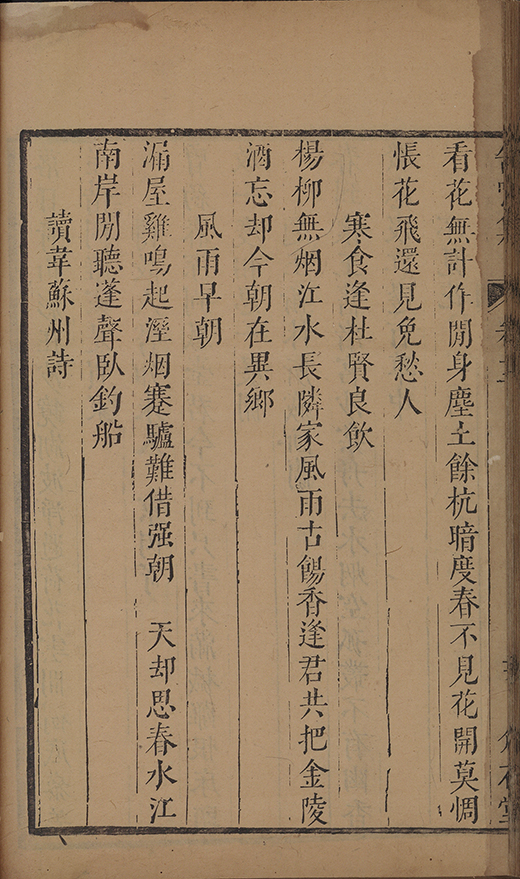 看花無計作閒身塵土餘杭暗度春不見花開莫惆
悵花飛還見免愁人
寒食逢杜賢良飲
楊柳無烟江水長隣家風雨古餳香逢君共把金陵
酒忘却今朝在異鄉
風雨早朝
漏屋雞鳴起溼烟蹇驢難借强朝　天却思春水江
南岸閒聽蓬聲臥釣船
讀韋蘇州詩